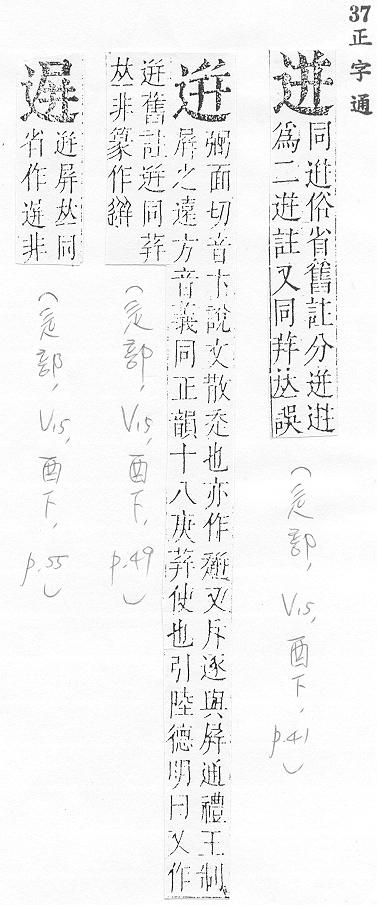 37 正字通
迸
同逬俗省舊註分逬迸
為二逬註又同荓𠀤誤
(辵部, V15, 酉下, p.41)
逬
弸面切音卞說文散走也亦作䢙又斥逐與屏通禮王制
屏之遠方音義同正韻十八庚荓使也引陸德明曰又作
逬舊註逬同荓
𠀤非篆作
(辵部, V15, 酉下, p.49)
逬屏𠀤同
省作逬非
(辵部, V15, 酉下, p.55)